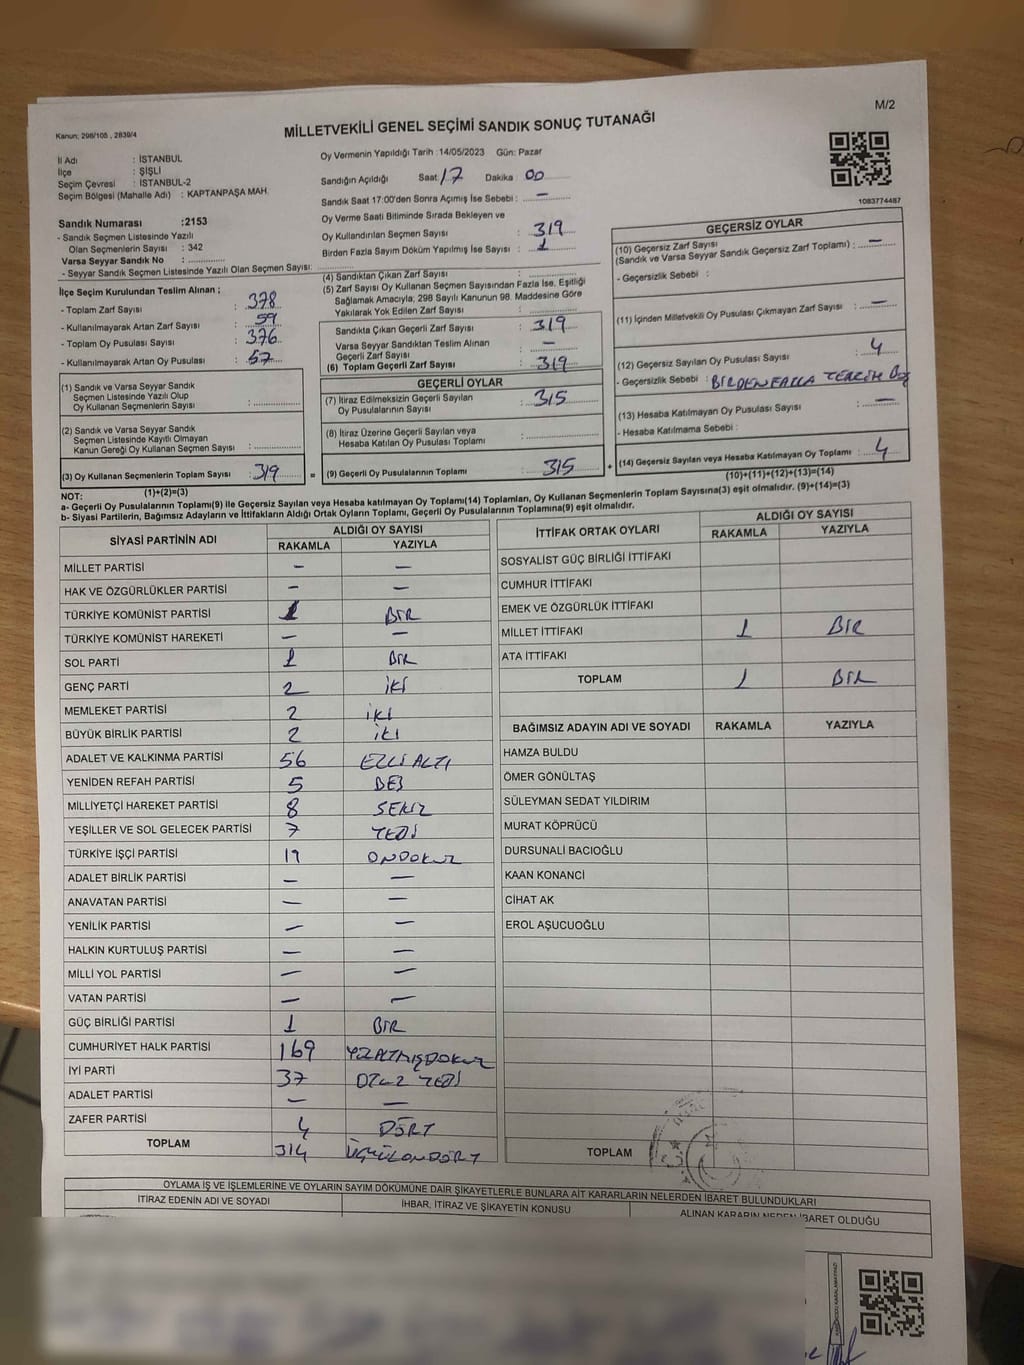 M/2
Kanun; 298/105 , 2839/4
MİLLETVEKİLİ GENEL SEÇİMİ SANDIK SONUÇ TUTANAĞI
İl Adı : İSTANBUL
İlçe : ŞİŞLİ
Seçim Çevresi : İSTANBUL-2
Seçim Bölgesi (Mahalle Adı) : KAPTANPAŞA MAH.
Sandık Numarası :2153
- Sandık Seçmen Listesinde Yazılı
Olan Seçmenlerin Sayısı : 342
Varsa Seyyar Sandık No : ..............
- Seyyar Sandık Seçmen Listesinde Yazılı Olan Seçmen Sayısı: ..............
İlçe Seçim Kurulundan Teslim Alınan ;
- Toplam Zarf Sayısı : 378
- Kullanılmayarak Artan Zarf Sayısı : 59
- Toplam Oy Pusulası Sayısı : 376
- Kullanılmayarak Artan Oy Pusulası : 57
(1) Sandık ve Varsa Seyyar Sandık
Seçmen Listesinde Yazılı Olup
Oy Kullanan Seçmenlerin Sayısı : ..............
(2) Sandık ve Varsa Seyyar Sandık
Seçmen Listesinde Kayıtlı Olmayan
Kanun Gereği Oy Kullanan Seçmen Sayısı : ..............
(3) Oy Kullanan Seçmenlerin Toplam Sayısı : 319
(1)+(2)=(3)
Oy Vermenin Yapıldığı Tarih :14/05/2023 Gün: Pazar
Sandığın Açıldığı Saat: 17 Dakika 00
Sandık Saat 17:00'den Sonra Açımış İse Sebebi : —
Oy Verme Saati Bitiminde Sırada Bekleyen ve
Oy Kullandırılan Seçmen Sayısı : 319
Birden Fazla Sayım Döküm Yapılmış İse Sayısı : 1
(4) Sandıktan Çıkan Zarf Sayısı : ..............
(5) Zarf Sayısı Oy Kullanan Seçmen Sayısından Fazla İse, Eşitliği
Sağlamak Amacıyla; 298 Sayılı Kanunun 98. Maddesine Göre
Yakılarak Yok Edilen Zarf Sayısı : ..............
Sandıkta Çıkan Geçerli Zarf Sayısı : 319
Varsa Seyyar Sandıktan Teslim Alınan
Geçerli Zarf Sayısı : —
(6) Toplam Geçerli Zarf Sayısı : 319
GEÇERLİ OYLAR
(7) İtiraz Edilmeksizin Geçerli Sayılan
Oy Pusulalarının Sayısı : 315
(8) İtiraz Üzerine Geçerli Sayılan veya
Hesaba Katılan Oy Pusulası Toplamı : ..............
= (9) Geçerli Oy Pusulalarının Toplamı : 315 +
1083774487
GEÇERSİZ OYLAR
(10) Geçersiz Zarf Sayısı
(Sandık ve Varsa Seyyar Sandık Geçersiz Zarf Toplamı) : —
- Geçersizlik Sebebi :
(11) İçinden Milletvekili Oy Pusulası Çıkmayan Zarf Sayısı : —
(12) Geçersiz Sayılan Oy Pusulası Sayısı : 4
- Geçersizlik Sebebi : BİRDEN FAZLA TERCİH
(13) Hesaba Katılmayan Oy Pusulası Sayısı : —
- Hesaba Katılmama Sebebi :
(14) Geçersiz Sayılan veya Hesaba Katılmayan Oy Toplamı : 4
(10)+(11)+(12)+(13)=(14)
NOT:
a- Geçerli Oy Pusulalarının Toplamı(9) ile Geçersiz Sayılan veya Hesaba katılmayan Oy Toplamı(14) Toplamları, Oy Kullanan Seçmenlerin Toplam Sayısına(3) eşit olmalıdır. (9)+(14)=(3)
b- Siyasi Partilerin, Bağımsız Adayların ve İttifakların Aldığı Ortak Oyların Toplamı, Geçerli Oy Pusulalarının Toplamına(9) eşit olmalıdır.
SİYASİ PARTİNİN ADI ALDIĞI OY SAYISI
RAKAMLA YAZIYLA
MİLLET PARTİSİ — —
HAK VE ÖZGÜRLÜKLER PARTİSİ — —
TÜRKİYE KOMÜNİST PARTİSİ 1 BİR
TÜRKİYE KOMÜNİST HAREKETİ — —
SOL PARTİ 1 BİR
GENÇ PARTİ 2 İKİ
MEMLEKET PARTİSİ 2 İKİ
BÜYÜK BİRLİK PARTİSİ 2 İKİ
ADALET VE KALKINMA PARTİSİ 56 ELLİ ALTI
YENİDEN REFAH PARTİSİ 5 BEŞ
MİLLİYETÇİ HAREKET PARTİSİ 8 SEKİZ
YEŞİLLER VE SOL GELECEK PARTİSİ 7 YEDİ
TÜRKİYE İŞÇİ PARTİSİ 19 ONDOKUZ
ADALET BİRLİK PARTİSİ — —
ANAVATAN PARTİSİ — —
YENİLİK PARTİSİ — —
HALKIN KURTULUŞ PARTİSİ — —
MİLLİ YOL PARTİSİ — —
VATAN PARTİSİ — —
GÜÇ BİRLİĞİ PARTİSİ 1 BİR
CUMHURİYET HALK PARTİSİ 169 YÜZALTMIŞDOKUZ
İYİ PARTİ 37 OTUZ YEDİ
ADALET PARTİSİ — —
ZAFER PARTİSİ 4 DÖRT
TOPLAM 314 ÜÇYÜZONDÖRT
İTTİFAK ORTAK OYLARI ALDIĞI OY SAYISI
RAKAMLA YAZIYLA
SOSYALİST GÜÇ BİRLİĞİ İTTİFAKI
CUMHUR İTTİFAKI
EMEK VE ÖZGÜRLÜK İTTİFAKI
MİLLET İTTİFAKI 1 BİR
ATA İTTİFAKI
TOPLAM 1 BİR
BAĞIMSIZ ADAYIN ADI VE SOYADI RAKAMLA YAZIYLA
HAMZA BULDU
ÖMER GÖNÜLTAŞ
SÜLEYMAN SEDAT YILDIRIM
MURAT KÖPRÜCÜ
DURSUNALİ BACIOĞLU
KAAN KONANCİ
CİHAT AK
EROL AŞUCUOĞLU
TOPLAM
OYLAMA İŞ VE İŞLEMLERİNE VE OYLARIN SAYIM DÖKÜMÜNE DAİR ŞİKAYETLERLE BUNLARA AİT KARARLARIN NELERDEN İBARET BULUNDUKLARI
İTİRAZ EDENİN ADI VE SOYADI İHBAR, İTİRAZ VE ŞİKAYETİN KONUSU ALINAN KARARIN NEDEN İBARET OLDUĞU